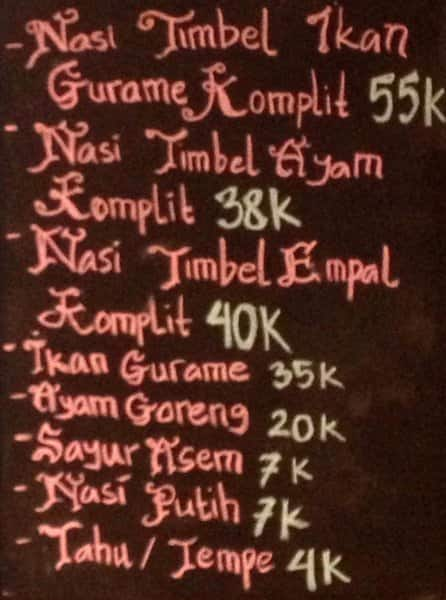 - Nasi Timbel Ikan
Gurame Komplit 55K
- Nasi Timbel Ayam
Komplit 38K
- Nasi Timbel Empal
Komplit 40K
- Ikan Gurame 35K
- Ayam Goreng 20K
- Sayur Asem 7K
- Nasi Putih 7K
- Tahu / Tempe 4K